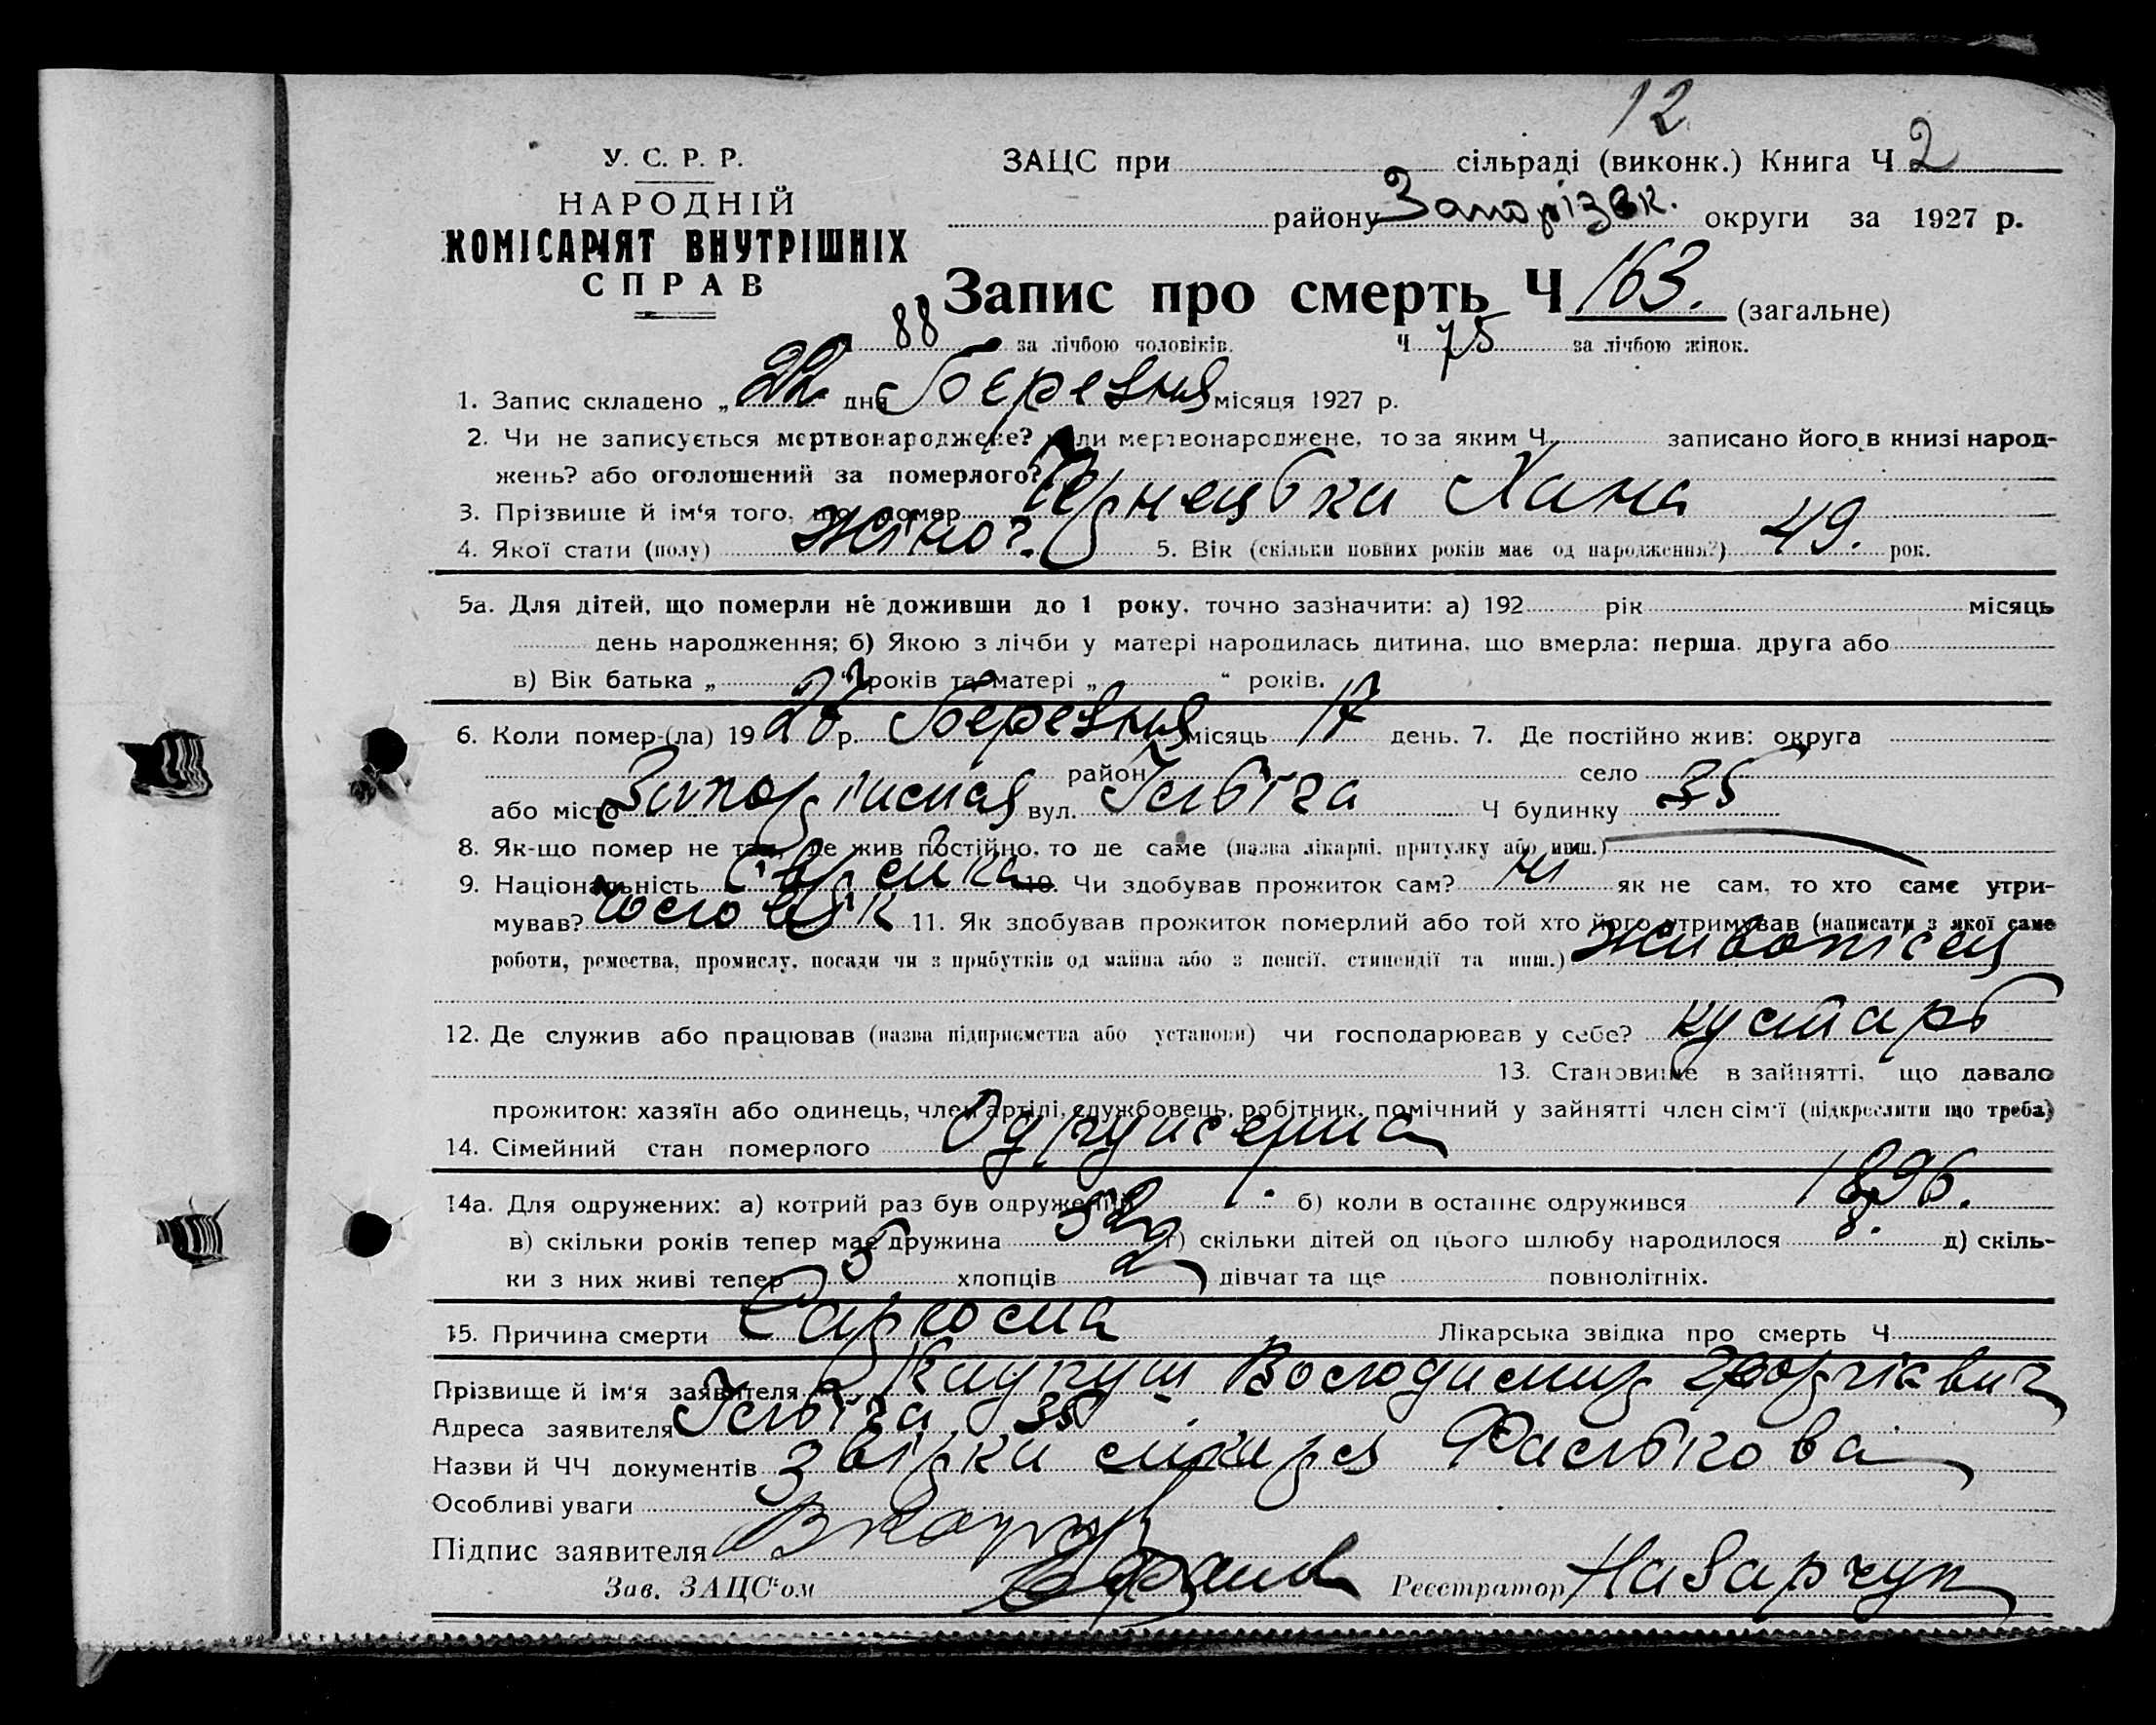 12
У. С. Р. Р.
НАРОДНІЙ
КОМІСАРІЯТ ВНУТРІШНІХ
СПРАВ
ЗАЦС при сільраді (виконк.) Книга Ч 2
району Запорізьк. округи за 1927 р.
Запис про смерть Ч 163. (загальне)
88 за лічбою чоловіків. Ч 75 за лічбою жінок.
1. Запис складено „ 22 дня Березня місяця 1927 р.
2. Чи не записується мертвонароджене? коли мертвонароджене, то за яким Ч. записано його в книзі народ-
жень? або оголошений за померлого?
3. Прізвище й ім'я того, що помер Хана
4. Якої стати (полу) жіно?. 5. Вік (скільки повних років має од народження?) 49. рок.
5а. Для дітей, що померли не доживши до 1 року, точно зазначити: а) 192 рік місяць
день народження; б) Якою з лічби у матері народилась дитина, що вмерла: перша, друга або
в) Вік батька „ “ років та матері „ “ років.
6. Коли помер-(ла) 1927 р. Березня місяць 17 день. 7. Де постійно жив: округа
район село
або місто Запоріжжя вул. Ілліча Ч будинку 35
8. Як-що помер не там, де жив постійно, то де саме (назва лікарні, притулку або инш.)
9. Національність Єврейка 10. Чи здобував прожиток сам? ні як не сам, то хто саме утри-
мував? чоловік 11. Як здобував прожиток померлий або той хто його утримував (написати з якої саме
роботи, ремества, промислу, посади чи з прибутків од майна або з пенсії, стипендії та инш.)
12. Де служив або працював (назва підприємства або установи) чи господарював у себе? кустарь
13. Становище в зайнятті, що давало
прожиток: хазяїн або одинець, член артілі, службовець, робітник, помічний у зайнятті член сім'ї (підкреслити що треба)
14. Сімейний стан померлого Одружена
14а. Для одружених: а) котрий раз був одружений 1. б) коли в останнє одружився 1896.
в) скільки років тепер має дружина 52 г) скільки дітей од цього шлюбу народилося 8. д) скіль-
ки з них живі тепер 5 хлопців 2 дівчат та ще повнолітніх.
15. Причина смерти Саркома Лікарська звідка про смерть Ч
Прізвище й ім'я заявителя Володимир
Адреса заявителя Ілліча 35
Назви й ЧЧ документів лікаря
Особливі уваги
Підпис заявителя
Зав. ЗАЦС'ом Реєстратор Назарчук